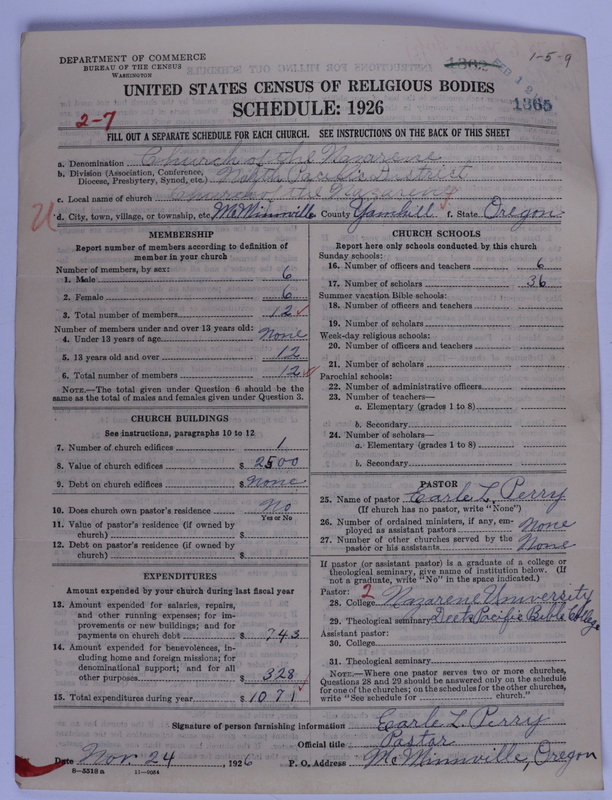 DEPARTMENT OF COMMERCE
BUREAU OF THE CENSUS
WASHINGTON
1-5-9
1302
1365
UNITED STATES CENSUS OF RELIGIOUS BODIES
SCHEDULE: 1926
2-7
FILL OUT A SEPARATE SCHEDULE FOR EACH CHURCH. SEE INSTRUCTIONS ON THE BACK OF THIS SHEET
a. Denomination Church of the Nazarene
b. Division (Association, Conference, Diocese, Presbytery, Synod, etc.) North Pacific District
c. Local name of church Church of the Nazarene
d. City, town, village, or township, etc. McMinnville County Yamhill f. State Oregon
MEMBERSHIP
Report number of members according to definition of
member in your church
Number of members, by sex:
1. Male 6
2. Female 6
3. Total number of members 12
Number of members under and over 13 years old:
4. Under 13 years of age None
5. 13 years old and over 12
6. Total number of members 12
NOTE.—The total given under Question 6 should be the
same as the total of males and females given under Question 3.
CHURCH BUILDINGS
See instructions, paragraphs 10 to 12
7. Number of church edifices 1
8. Value of church edifices $ 2500
9. Debt on church edifices $ None
10. Does church own pastor's residence No
Yes or No
11. Value of pastor's residence (if owned by
church) $
12. Debt on pastor's residence (if owned by
church) $
EXPENDITURES
Amount expended by your church during last fiscal year
13. Amount expended for salaries, repairs,
and other running expenses; for im-
provements or new buildings; and for
payments on church debt $ 743
14. Amount expended for benevolences, in-
cluding home and foreign missions; for
denominational support; and for all
other purposes $ 328
15. Total expenditures during year $ 1071
CHURCH SCHOOLS
Report here only schools conducted by this church
Sunday schools:
16. Number of officers and teachers 6
17. Number of scholars 36
Summer vacation Bible schools:
18. Number of officers and teachers
19. Number of scholars
Week-day religious schools:
20. Number of officers and teachers
21. Number of scholars
Parochial schools:
22. Number of administrative officers
23. Number of teachers—
a. Elementary (grades 1 to 8)
b. Secondary
24. Number of scholars—
a. Elementary (grades 1 to 8)
b. Secondary
PASTOR
25. Name of pastor Earle L. Perry
(If church has no pastor, write "None")
26. Number of ordained ministers, if any, em-
ployed as assistant pastors None
27. Number of other churches served by the
pastor or his assistants None
If pastor (or assistant pastor) is a graduate of a college or
theological seminary, give name of institution below. (If
not a graduate, write "No" in the space indicated.)
Pastor: 2
28. College Nazarene University
29. Theological seminary Deets Pacific Bible College
Assistant pastor:
30. College
31. Theological seminary
NOTE.—Where one pastor serves two or more churches,
Questions 28 and 29 should be answered only on the schedule
for one of the churches; on the schedules for the other churches,
write "See schedule for church."
Signature of person furnishing information Earle L. Perry
Official title Pastor
Date Nov. 24, 1926 P. O. Address McMinnville, Oregon
8-5518 a 11-9064